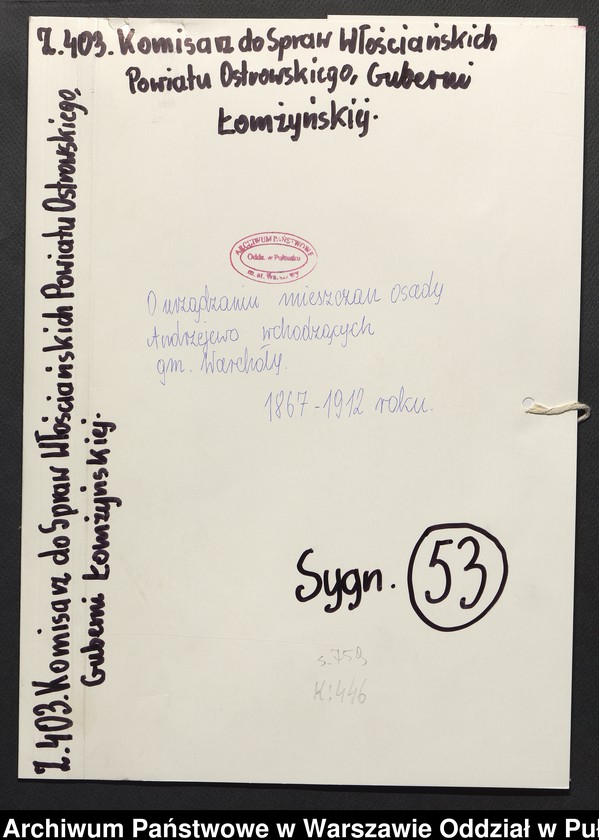 Z.403. Komisarz do Spraw Włościańskich
Powiatu Ostrowskiego, Guberni
Łomżyńskiej.
Z.403. Komisarz do Spraw Włościańskich Powiatu Ostrowskiego,
Guberni Łomżyńskiej.
ARCHIWUM PAŃSTWOWE
Oddz. w Pułtusku
m. st. Warszawy
O urządzaniu mieszczan osady
Andrzejewo wchodzących
gm. Warchoły.
1867-1912 roku.
Sygn. 53
s. 759
K: 446
Archiwum Państwowe w Warszawie Oddział w Puł